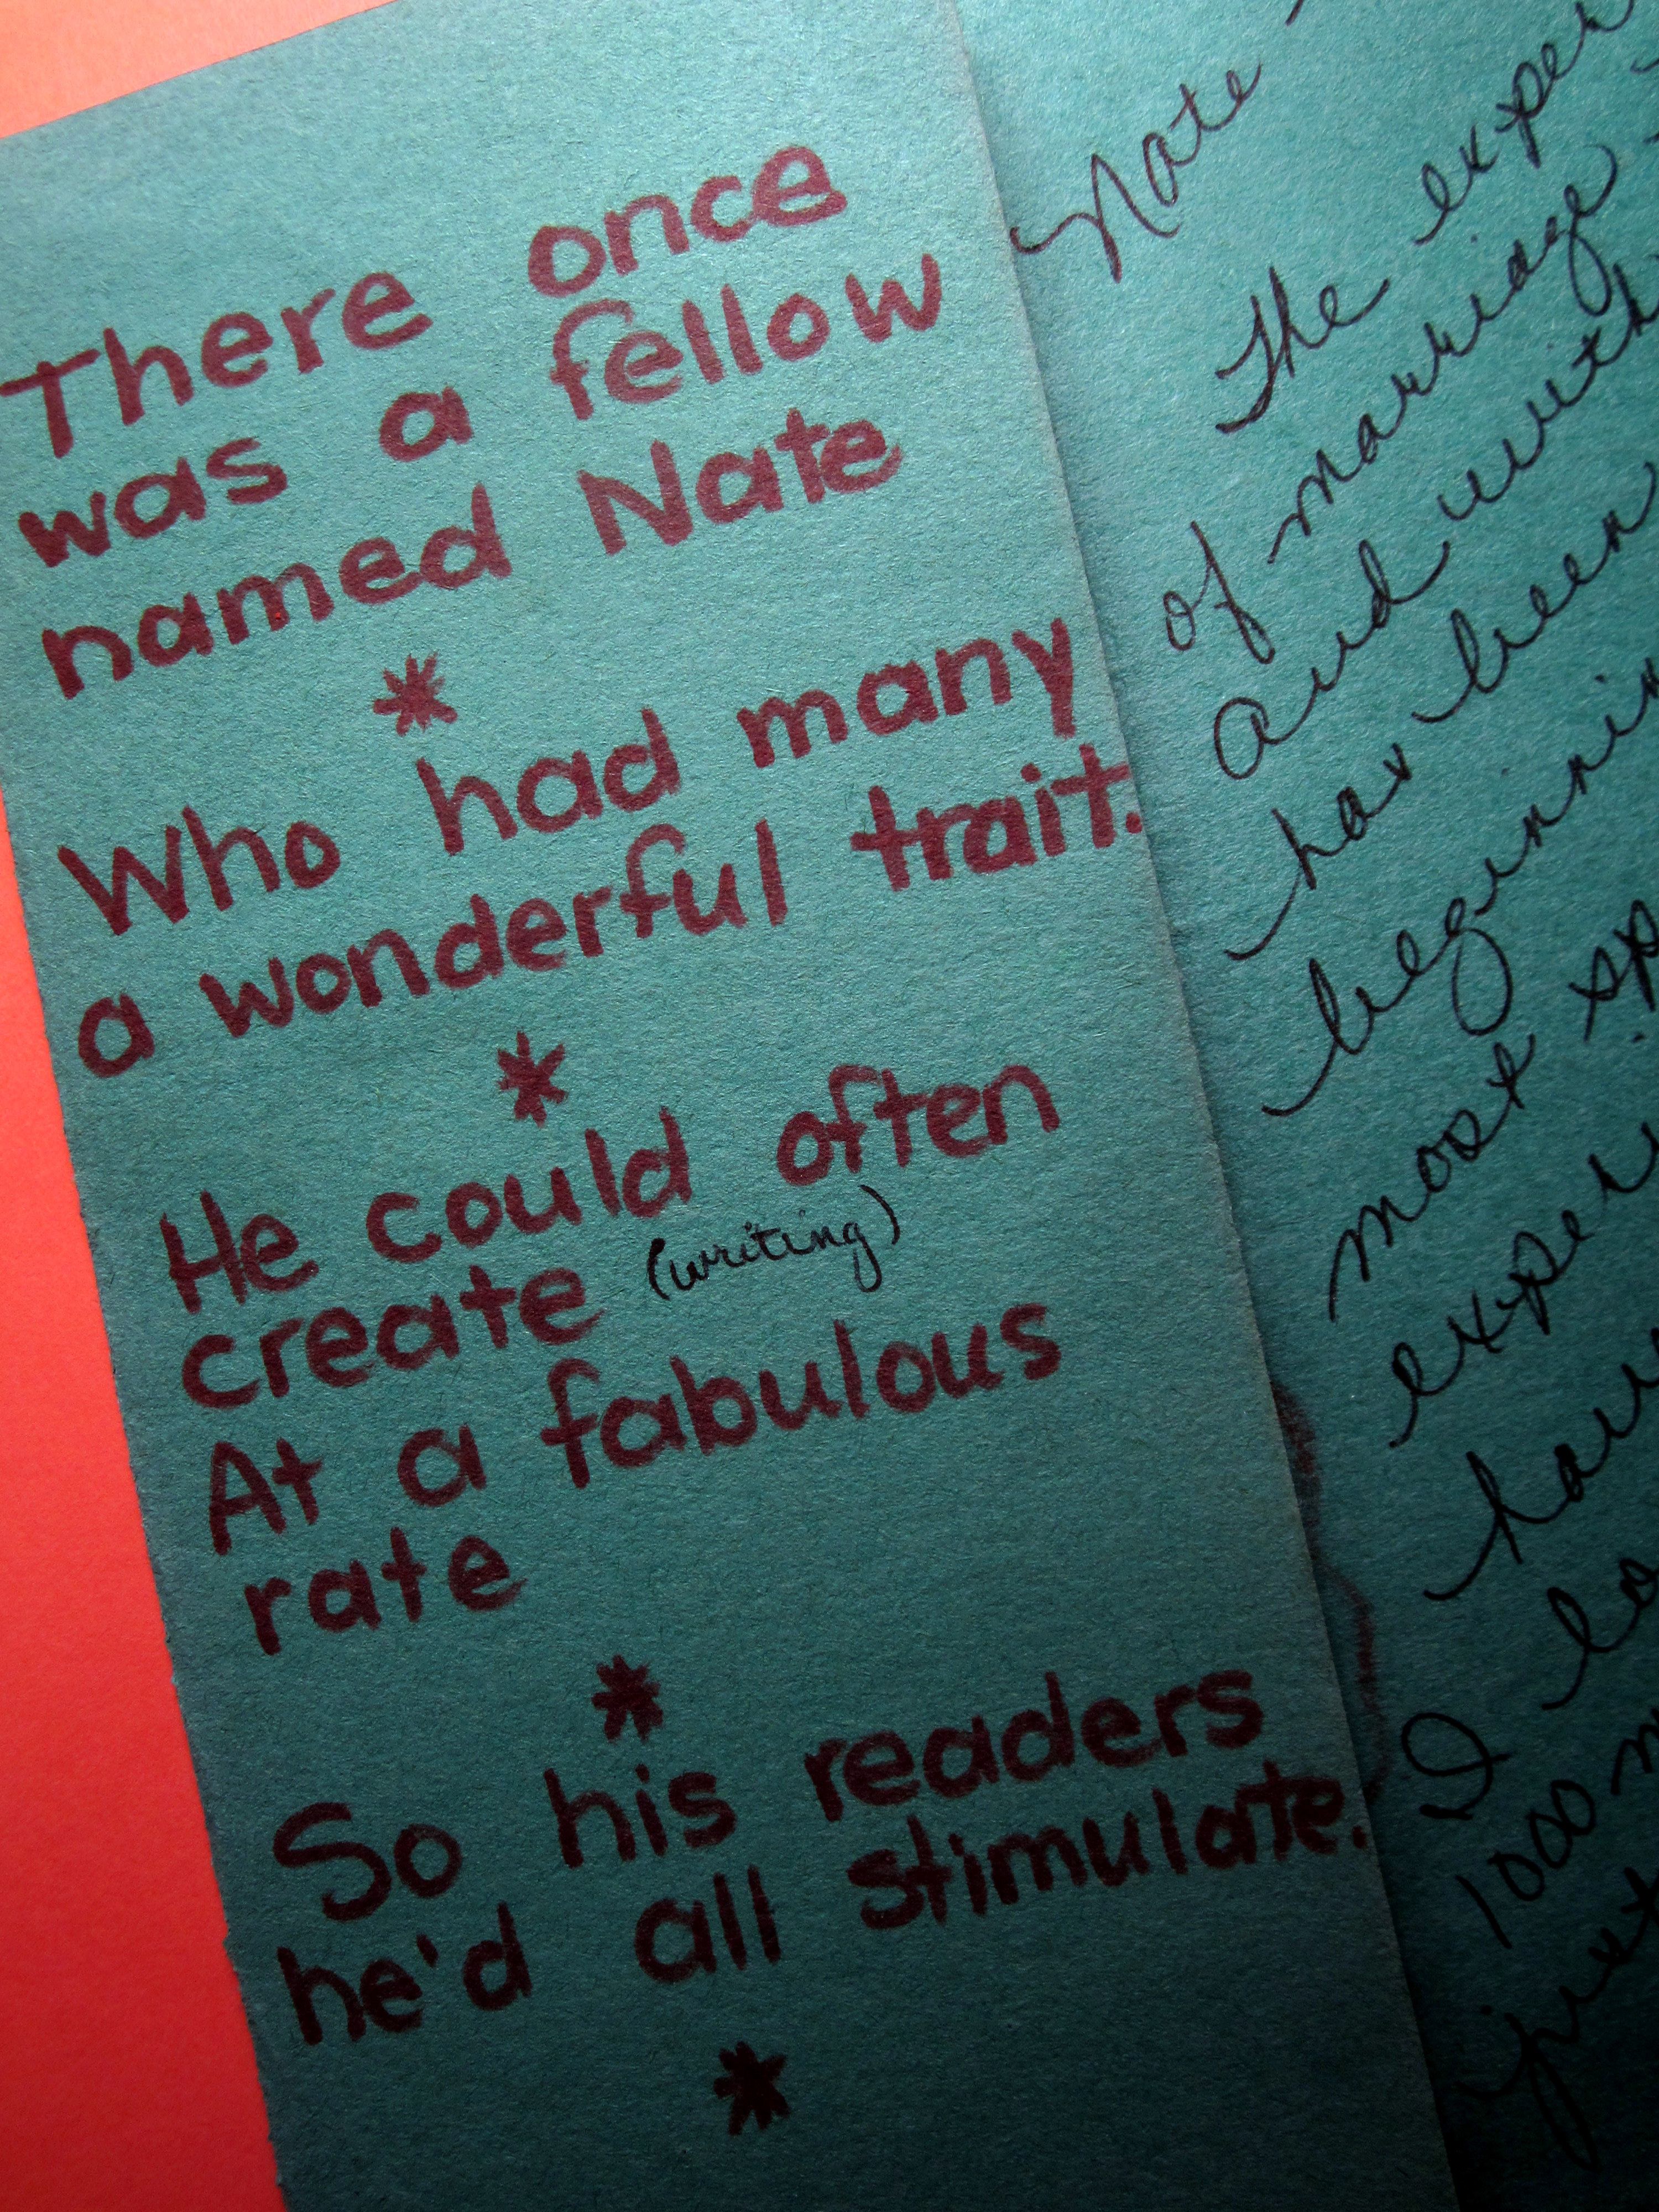 There once
was a fellow
named Nate
*
Who had many
a wonderful trait.
*
He could often
create (writing)
At a fabulous
rate
*
So his readers
he'd all stimulate.
*
Nate
The
of marriage
and with
has been
most
I
1000